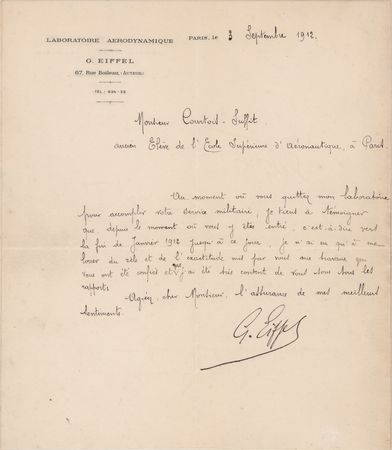 LABORATOIRE AERODYNAMIQUE
G. EIFFEL
67, Rue Boileau, (AUTEUIL)
TÉL : 624-52
PARIS, le 3 Septembre 1912.
Monsieur Courtois-Suffit
ancien Elève de l'Ecole Supérieure d'Aéronautique, à Paris.
Au moment où vous quittez mon laboratoire
pour accomplir votre service militaire, je tiens à témoigner
que, depuis le moment où vous y êtes entré, c'est-à-dire vers
la fin de Janvier 1912 jusqu'à ce jour, je n'ai eu qu'à me
louer du zèle et de l'exactitude mis par vous aux travaux qui
vous ont été confiés et que j'ai été très content de vous sous tous les
rapports.
Agréez, cher Monsieur, l'assurance de mes meilleurs
sentiments.
G. Eiffel